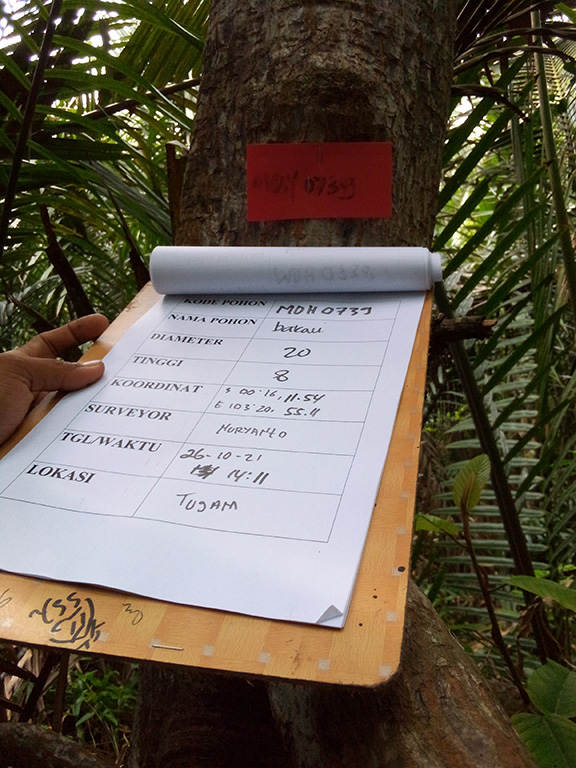 MDH 0739
KODE POHON MDH 0739
NAMA POHON bakau
DIAMETER 20
TINGGI 8
KOORDINAT S 00.16.11.54
E 103.20.55.11
SURVEYOR MURYANTO
TGL/WAKTU 26-10-21
14:11
LOKASI TUJAM